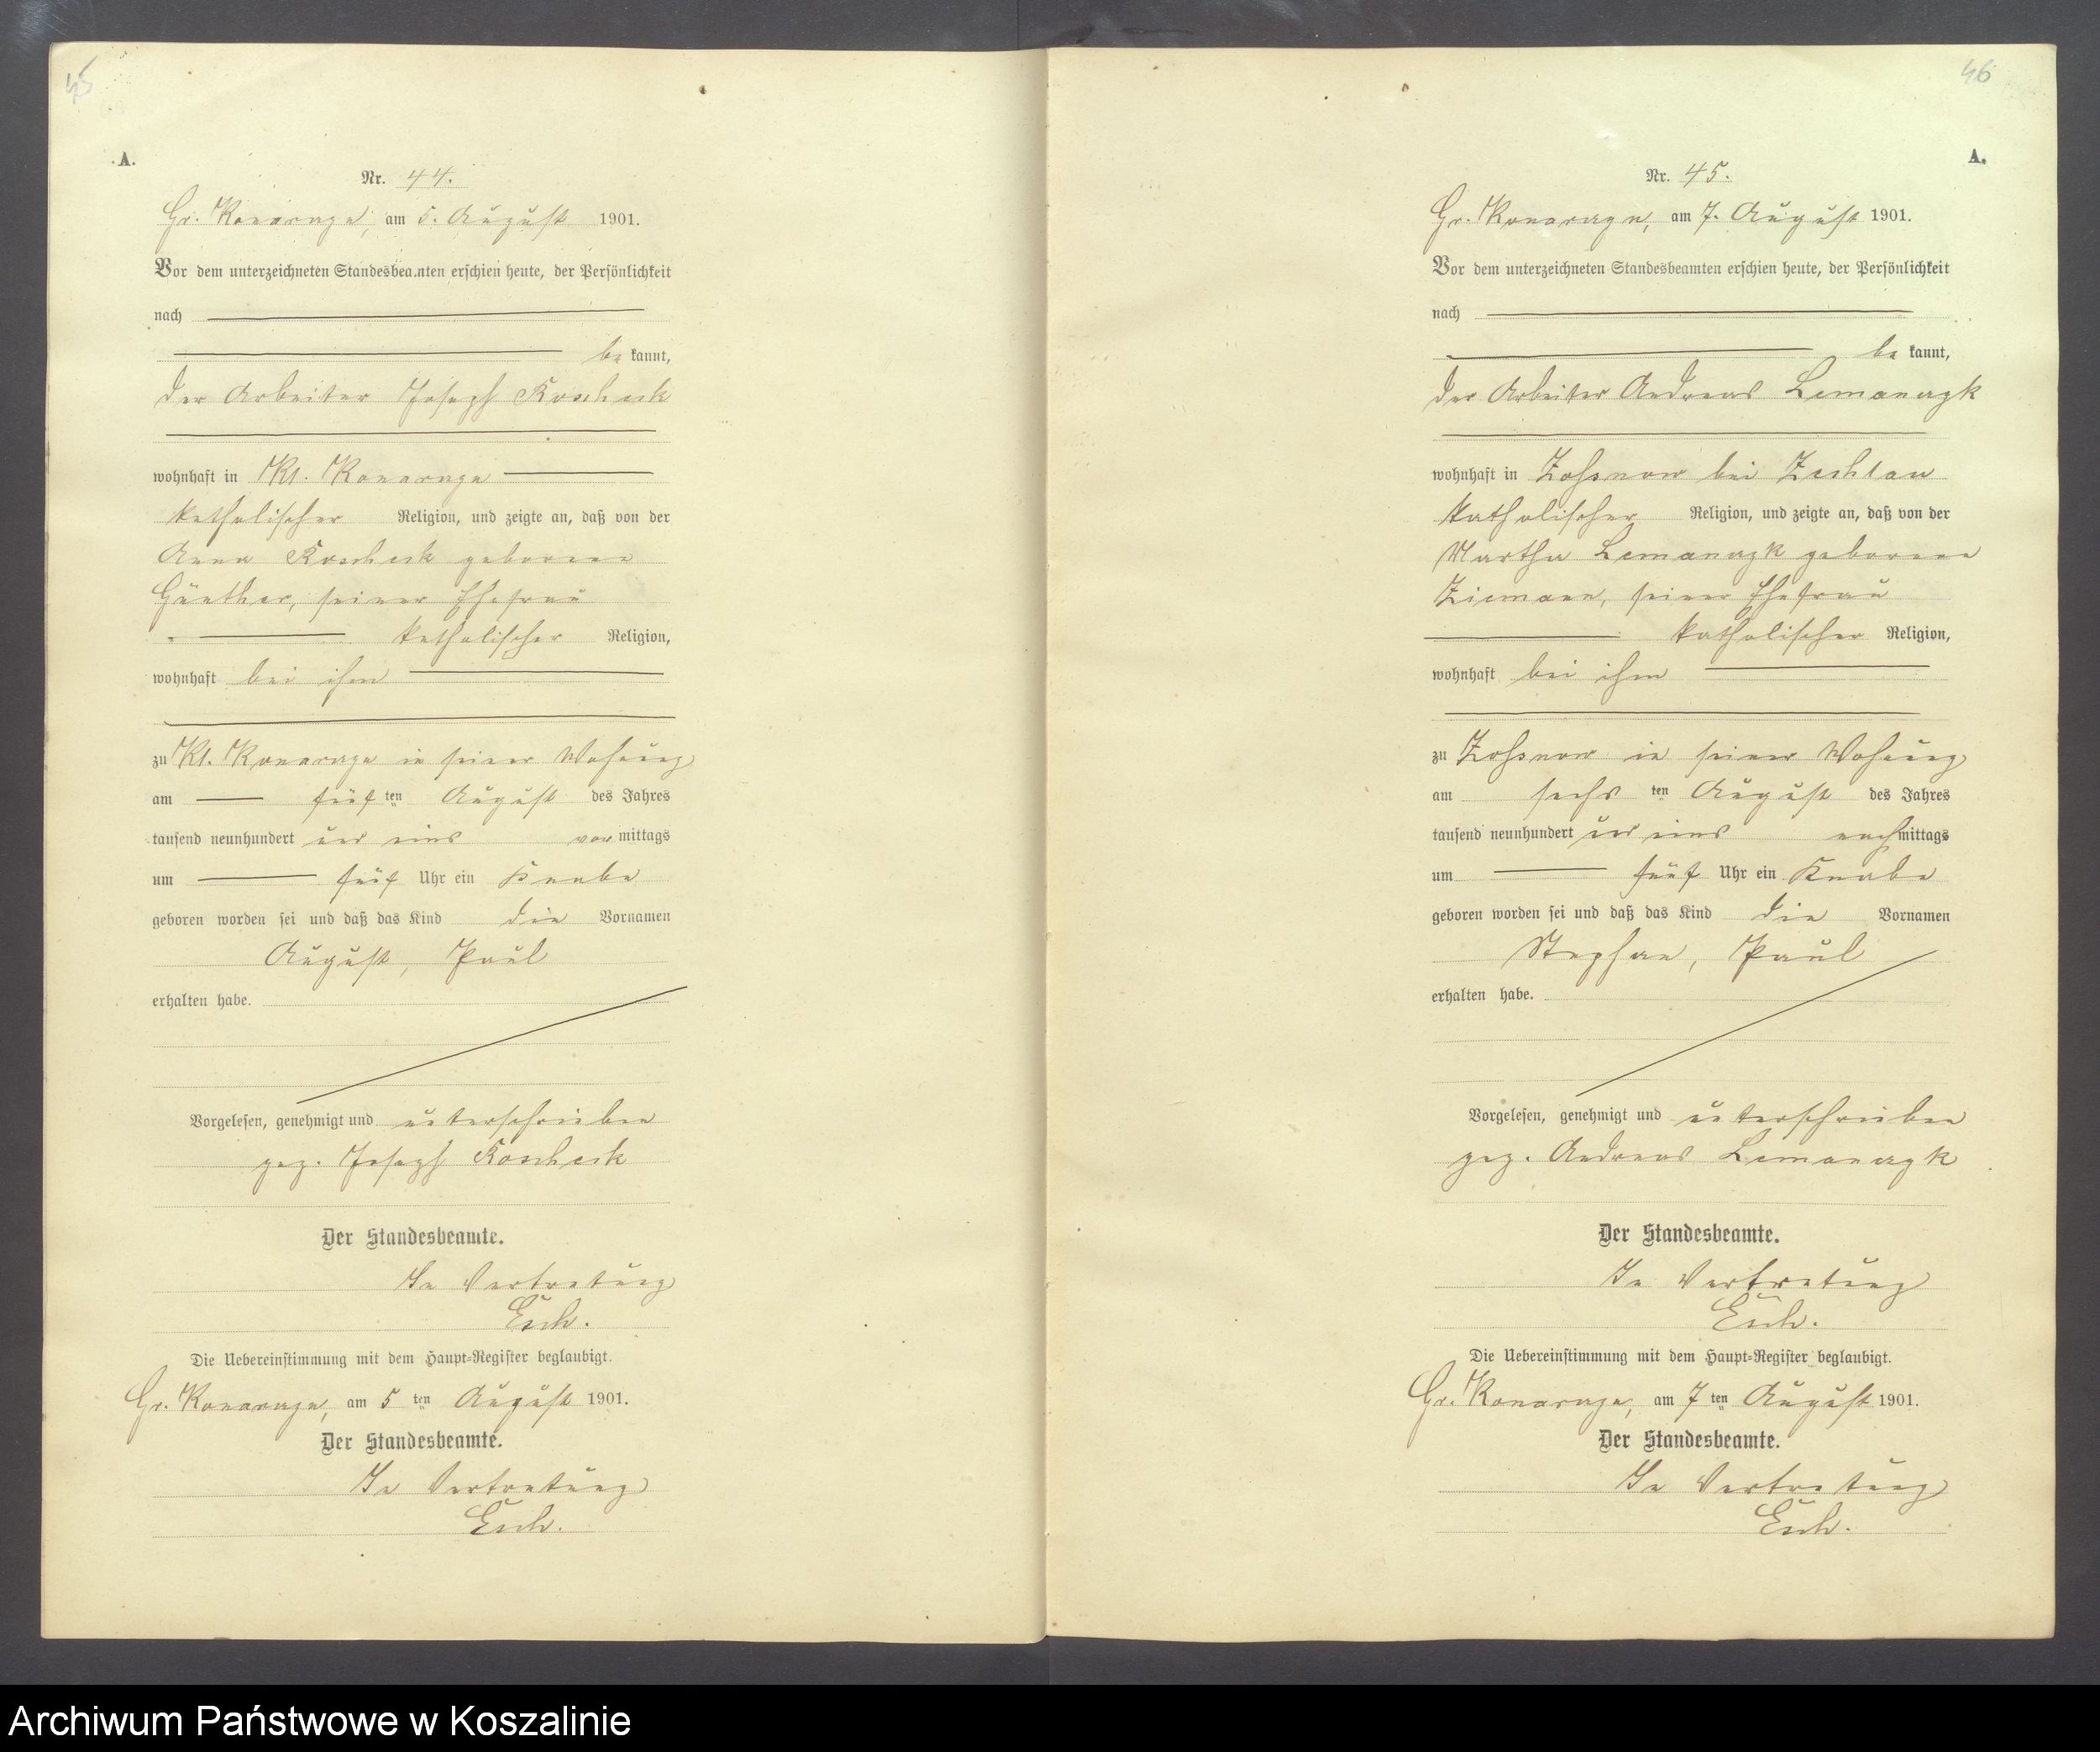 45
A.
Nr. 44.
Gr. Konarzyn, am 5. August 1901.
Vor dem unterzeichneten Standesbeamten erschien heute, der Persönlichkeit
nach
be kannt,
der Arbeiter Joseph Koscheck
wohnhaft in Kl. Konarzyn
katholischer Religion, und zeigte an, daß von der
Anna Koscheck geborene
Günther, seiner Ehefrau
katholischer Religion,
wohnhaft bei ihm
zu Kl. Konarzyn in seiner Wohnung
am fünf ten August des Jahres
tausend neunhundert und eins vor mittags
um fünf Uhr ein Knabe
geboren worden sei und daß das Kind die Vornamen
August, Paul
erhalten habe.
Vorgelesen, genehmigt und unterschrieben
gez. Joseph Koscheck
Der Standesbeamte.
In Vertretung
Esch.
Die Uebereinstimmung mit dem Haupt-Register beglaubigt.
Gr. Konarzyn, am 5 ten August 1901.
Der Standesbeamte.
In Vertretung
Esch.
46
A.
Nr. 45.
Gr. Konarzyn, am 7. August 1901.
Vor dem unterzeichneten Standesbeamten erschien heute, der Persönlichkeit
nach
be kannt,
der Arbeiter Andreas Lemanczyk
wohnhaft in Zossnow bei
katholischer Religion, und zeigte an, daß von der
Martha Lemanczyk geborene
Ziemann, seiner Ehefrau
katholischer Religion,
wohnhaft bei ihm
zu Zossnow in seiner Wohnung
am sechs ten August des Jahres
tausend neunhundert und eins nach mittags
um fünf Uhr ein Knabe
geboren worden sei und daß das Kind die Vornamen
Stephan, Paul
erhalten habe.
Vorgelesen, genehmigt und unterschrieben
gez. Andreas Lemanczyk
Der Standesbeamte.
In Vertretung
Esch.
Die Uebereinstimmung mit dem Haupt-Register beglaubigt.
Gr. Konarzyn, am 7 ten August 1901.
Der Standesbeamte.
In Vertretung
Esch.
Archiwum Państwowe w Koszalinie